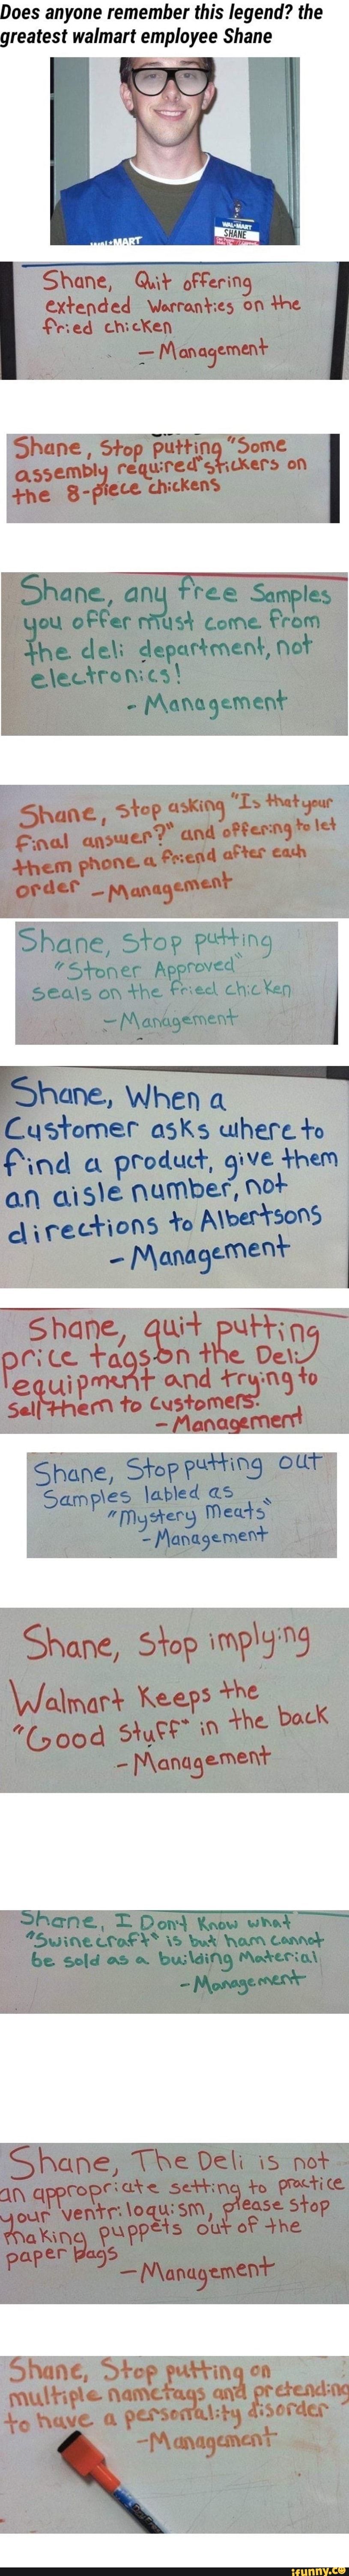 Does anyone remember this legend? the
greatest walmart employee Shane
WAL★MART
WAL★MART
SHANE
Shane, Quit offering
extended warranties on the
fried chicken
— Management
Shane, Stop putting "Some
assembly required" stickers on
the 8-piece chickens
Shane, any free Samples
you offer must come from
the deli department, not
electronics!
- Management
Shane, Stop asking "Is that your
final answer?" and offering to let
them phone a friend after each
order - Management
Shane, Stop putting
"Stoner Approved"
seals on the fried chicken
- Management
Shane, When a
Customer asks where to
find a product, give them
an aisle number, not
directions to Albertsons
- Management
Shane, quit putting
price tags on the Deli
equipment and trying to
sell them to customers.
- Management
Shane, Stop putting out
Samples labled as
"Mystery Meats"
- Management
Shane, Stop implying
Walmart Keeps the
"Good Stuff" in the back
- Management
Shane, I Don't Know what
"Swinecraft" is but ham cannot
be sold as a building Material
- Management
Shane, The Deli is not
an appropriate setting to practice
your ventriloquism, please stop
making puppets out of the
paper bags
- Management
Shane, Stop putting on
multiple nametags and pretending
to have a personality disorder
- Management
ifunny.co